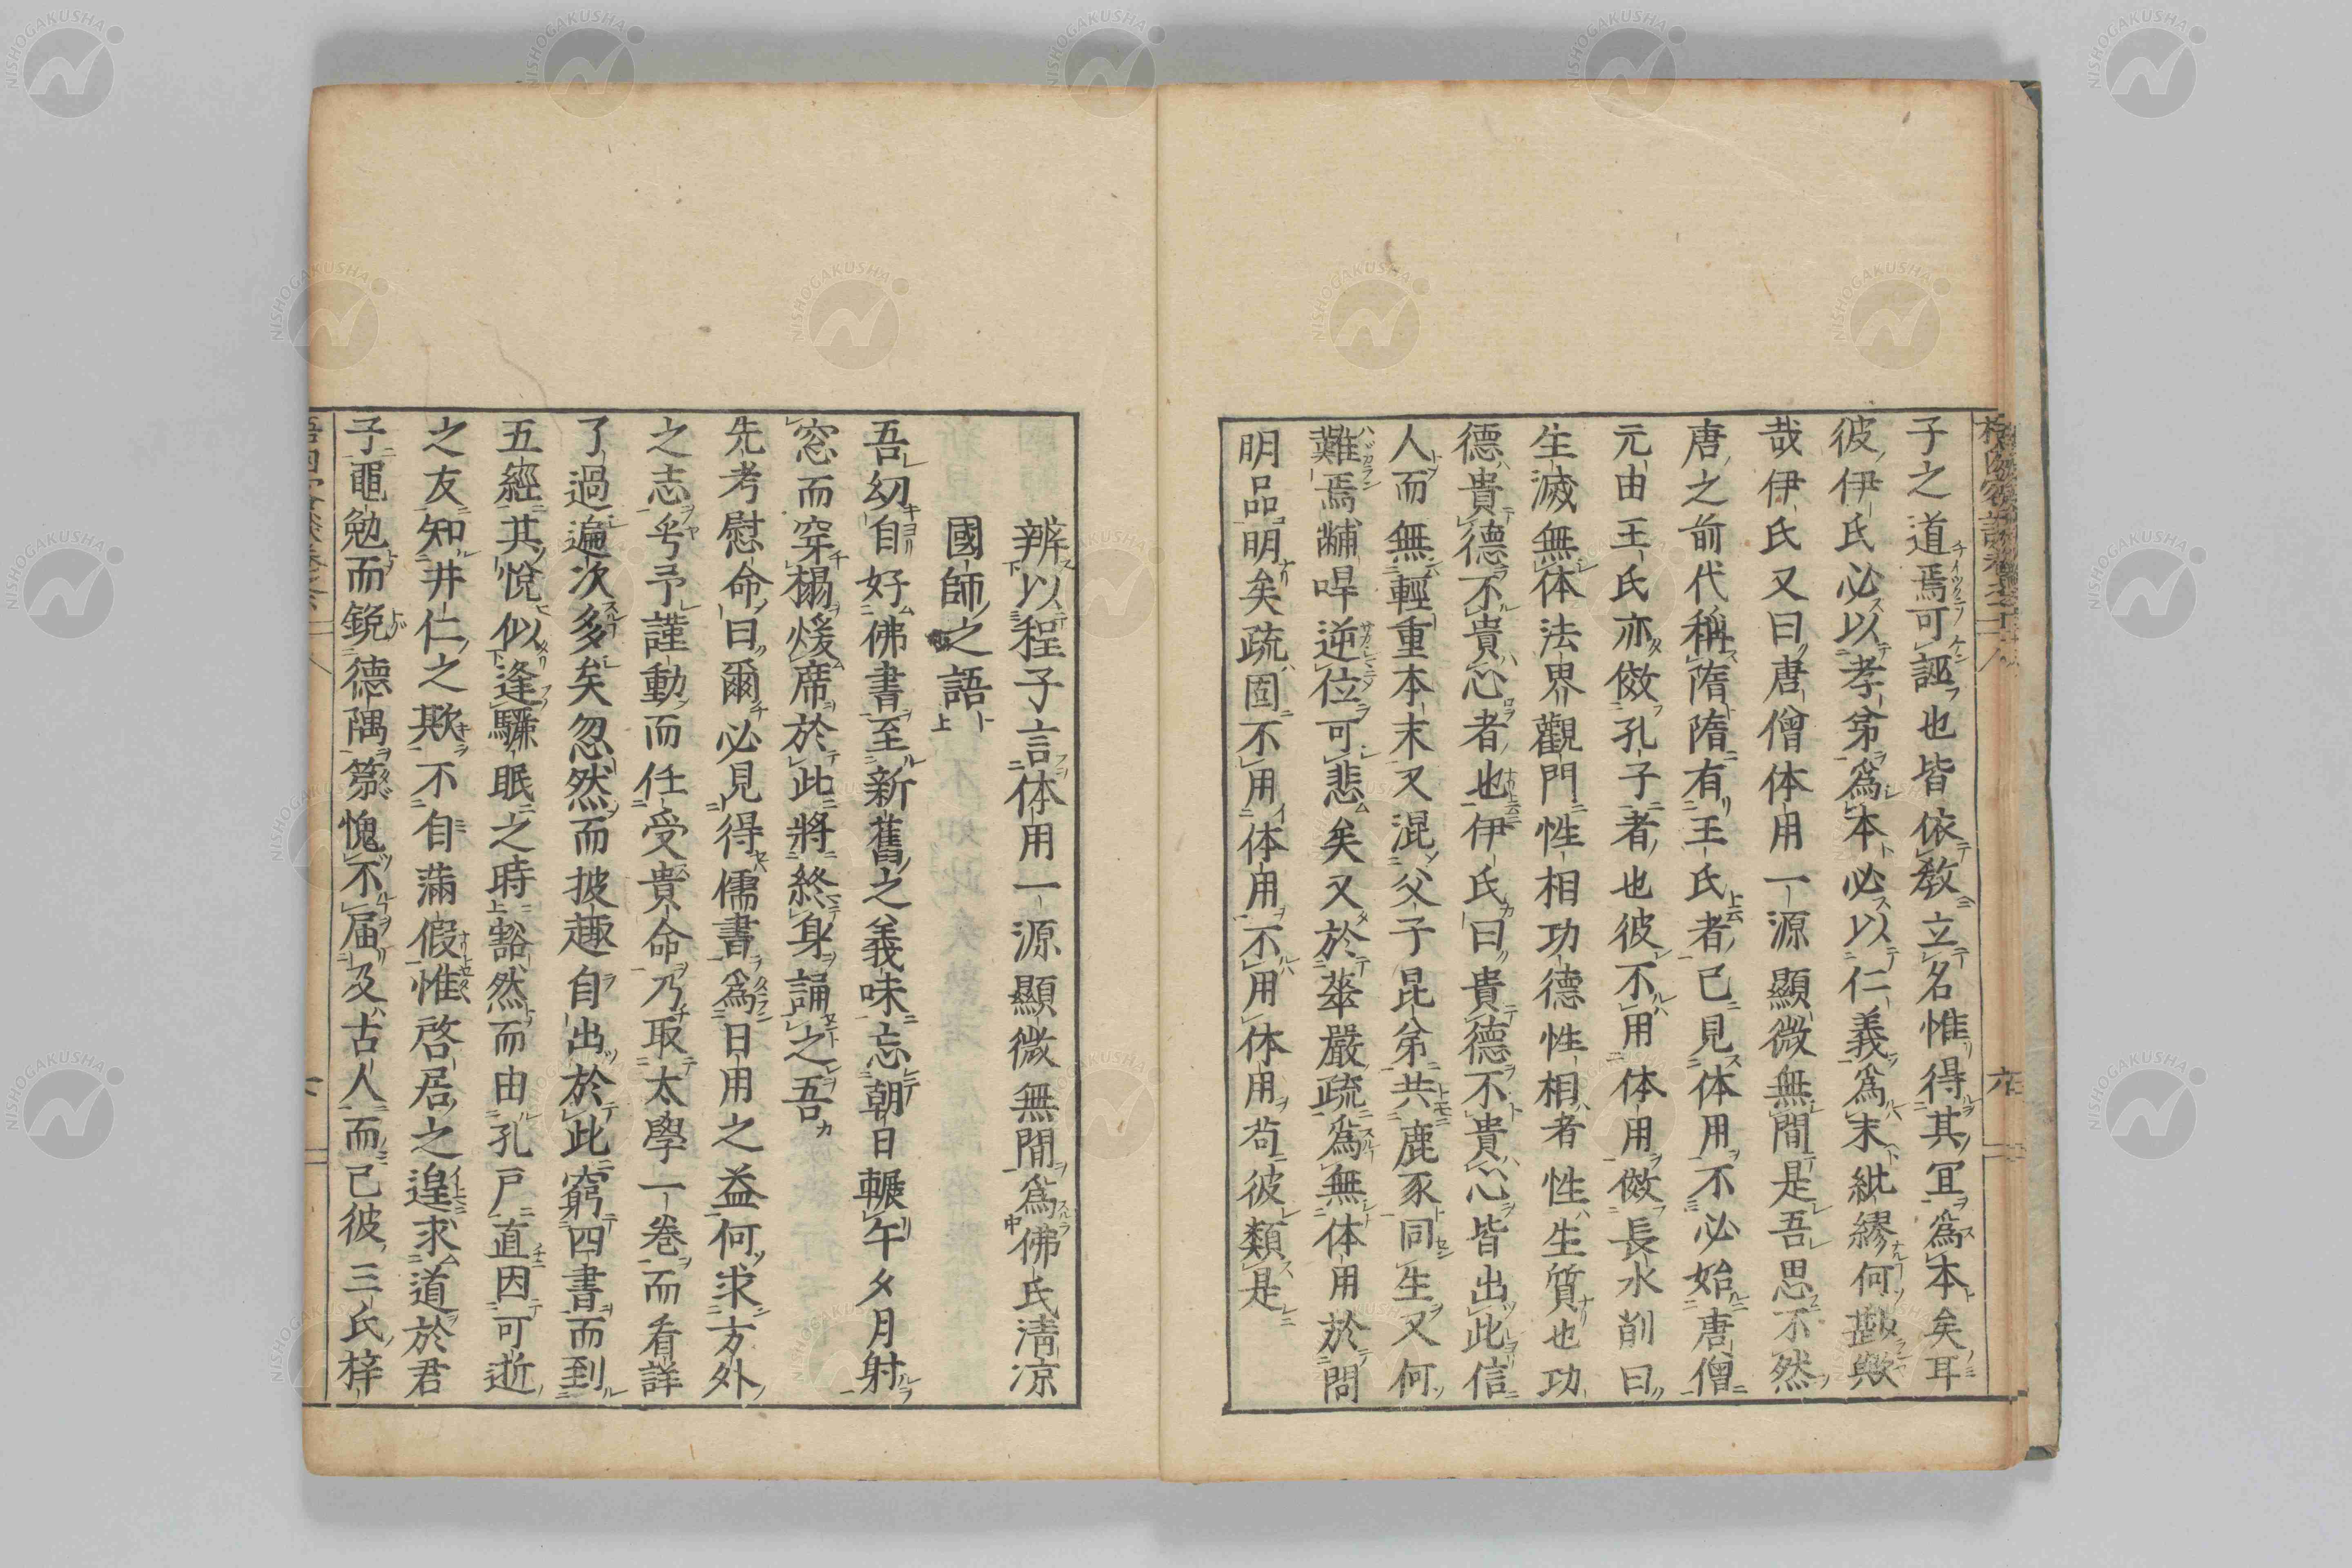 子之道焉可誣也皆依教立名惟得其宜爲本矣耳
彼伊氏必以孝弟爲本必以仁義爲末紕繆何勘歟
哉伊氏又曰唐僧体用一源顯微無間是吾思不然
唐之前代稱隋隋有王氏者已見体用不必始唐僧
元由王氏亦傚孔子者也彼不用体用傚長水削曰
生滅無体法界觀門性相功德性相者性生質也功
德貴德不貴心者也伊氏曰貴德不貴心皆出此信
人而無輕重本末又混父子昆弟共鹿豕同生又何
難焉黼哻逆位可悲矣又於華嚴疏爲無体用於問
明品明矣疏固不用体用不用体用苟彼類是
辨以程子言体用一源顯微無間爲佛氏淸凉
國師之語
吾幼自好佛書至新舊之義味忘朝日輾午夕月射
窓而穿榻煖席於此將終身誦之吾
先考慰命曰爾必見得儒書爲日用之益何求方外
之志乎予謹動而任受貴命乃取太學一卷而看詳
了過遍次多矣忽然而披趣自出於此窮四書而到
五經其悅似逢驥眠之時豁然而由孔戸直因可逝
之友知井仁之欺不自滿假惟啓居之遑求道於君
子黽勉而鋭德隅篛愧不届及古人而已彼三氏梓
NISHOGAKUSHA